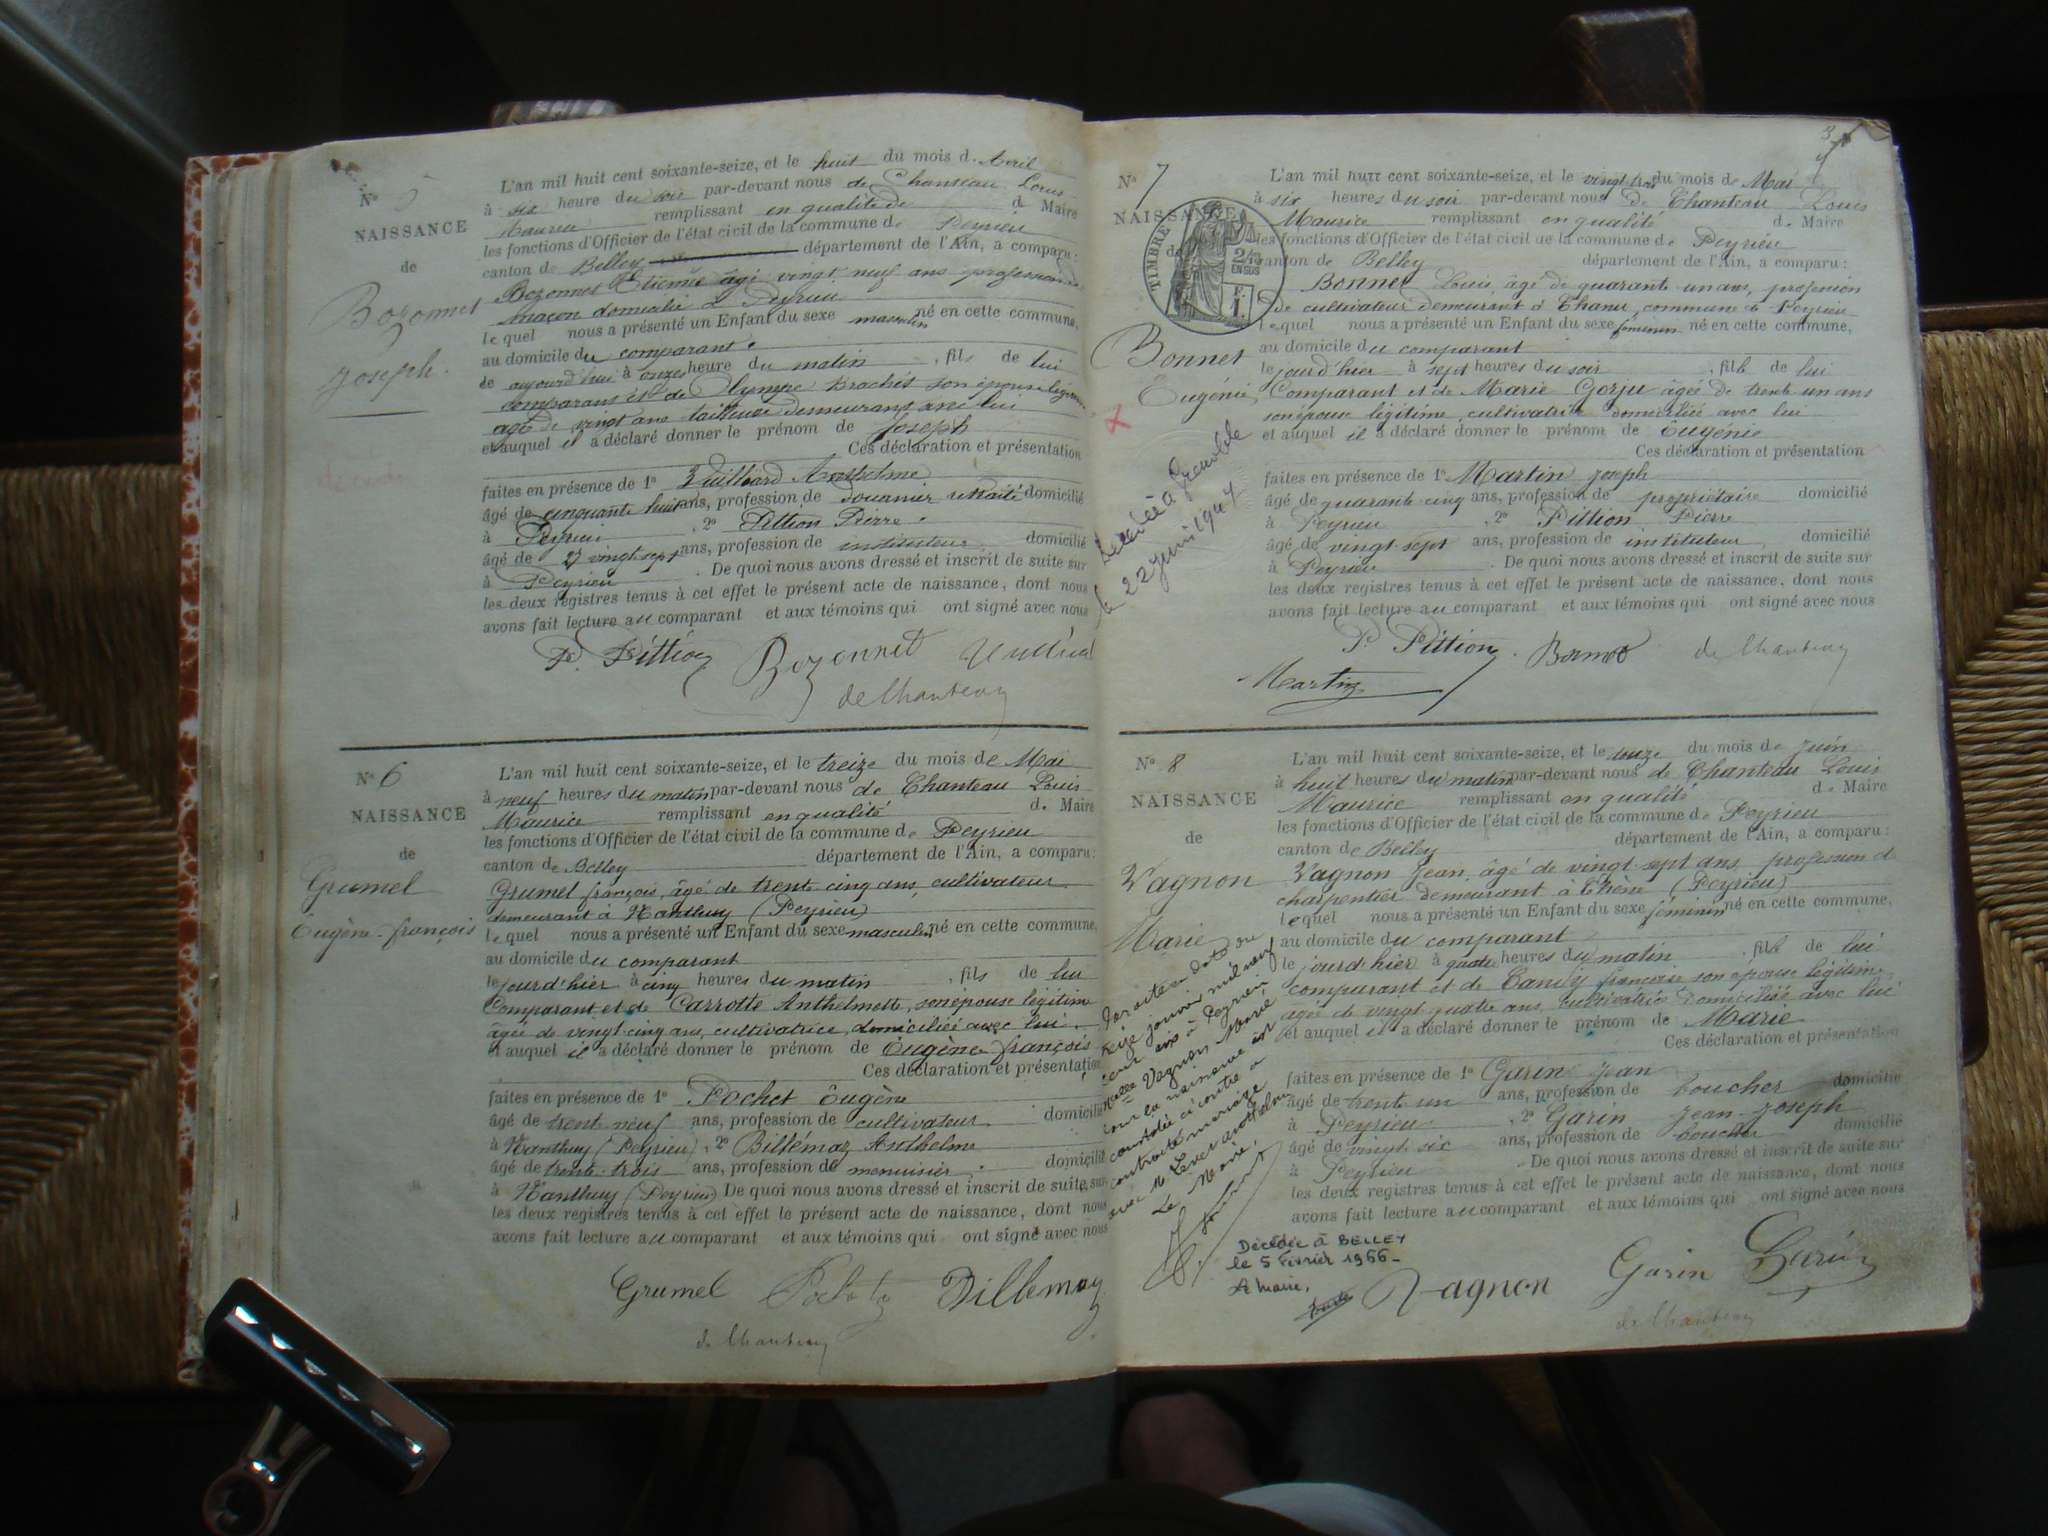 N° 5
NAISSANCE
de
Bozonnet
Joseph.
L'an mil huit cent soixante-seize, et le huit du mois d. Avril
à six heure du soir par-devant nous de Chanteau Louis
Maurice remplissant en qualité de d. Maire
les fonctions d'Officier de l'état civil de la commune de Peyrieu
canton de Belley département de l'Ain, a comparu:
Bozonnet Etienne âgé vingt neuf ans profession
maçon domicilié à Peyrieu
lequel nous a présenté un Enfant du sexe masculin né en cette commune,
au domicile du comparant
de aujourd'hui à onze heure du matin, fils de lui
comparans et de Olympe son épouse légitime
agé de vingt ans tailleuse demeurans avec lui
et auquel il a déclaré donner le prénom de Joseph
Ces déclaration et présentation
faites en présence de 1° Vuilliard Anthelme
âgé de cinquante huit ans, profession de Douanier retraité domicilié
à Peyrieu, 2° Pittion Pierre
âgé de 27 vingt sept ans, profession de instituteur domicilié
à Peyrieu. De quoi nous avons dressé et inscrit de suite sur
les deux registres tenus à cet effet le présent acte de naissance, dont nous
avons fait lecture au comparant et aux témoins qui ont signé avec nous
P. Pittion Bozonnet
de Chanteau
N° 6
NAISSANCE
de
Grumel
Eugène-françois
L'an mil huit cent soixante-seize, et le treize du mois de Mai
à neuf heures du matin par-devant nous de Chanteau Louis
Maurice remplissant en qualité d. Maire
les fonctions d'Officier de l'état civil de la commune de Peyrieu
canton de Belley département de l'Ain, a comparu:
Grumel françois, âgé de trente cinq ans, cultivateur
demeurant à Nanthuy (Peyrieu)
lequel nous a présenté un Enfant du sexe masculin né en cette commune,
au domicile du comparant
le jourd'hier à cinq heures du matin, fils de lui
Comparant et de Carrotte Anthelmette, son épouse légitime
âgée de vingt cinq ans, cultivatrice, domiciliée avec lui
et auquel il a déclaré donner le prénom de Eugène françois
Ces déclaration et présentation
faites en présence de 1° Pochet Eugène
âgé de trente neuf ans, profession de cultivateur domicilié
à Nanthuy (Peyrieu), 2° Billémaz Anthelme
âgé de trente-trois ans, profession de menuisier domicilié
à Nanthuy (Peyrieu) De quoi nous avons dressé et inscrit de suite sur
les deux registres tenus à cet effet le présent acte de naissance, dont nous
avons fait lecture au comparant et aux témoins qui ont signé avec nous
Grumel Billemaz
de Chanteau
3
N° 7
NAISSANCE
de
TIMBRE
2/10
EN SUS
Bonnet
Eugénie
Décédée à Grenoble
le 22 juin 1947
L'an mil huit cent soixante-seize, et le vingt trois du mois de Mai
à six heures du soir par-devant nous de Chanteau Louis
Maurice remplissant en qualité d. Maire
les fonctions d'Officier de l'état civil de la commune de Peyrieu
canton de Belley département de l'Ain, a comparu:
Bonnet Louis, âgé de quarante-un ans, profession
de cultivateur demeurant à Chanu, commune de Peyrieu
lequel nous a présenté un Enfant du sexe féminin né en cette commune,
au domicile du comparant
le jourd'hier à sept heures du soir, fille de lui
Comparant et de Marie Gorju âgée de trente un ans
son épouse légitime, cultivatrice domiciliée avec lui
et auquel il a déclaré donner le prénom de Eugénie
Ces déclaration et présentation
faites en présence de 1° Martin Joseph
âgé de quarante-cinq ans, profession de propriétaire domicilié
à Peyrieu, 2° Pittion Pierre
âgé de vingt-sept ans, profession de instituteur domicilié
à Peyrieu. De quoi nous avons dressé et inscrit de suite sur
les deux registres tenus à cet effet le présent acte de naissance, dont nous
avons fait lecture au comparant et aux témoins qui ont signé avec nous
P. Pittion. Bonnet de Chanteau
Martin
N° 8
NAISSANCE
de
Vagnon
Marie
Par acte en date du
seize janvier mil neuf
cent six à Peyrieu
Melle Vagnon Marie
dont la naissance est
constatée ci contre a
contracté mariage
avec M. Anthelme
Le Maire
Décédée à BELLEY
le 5 Février 1966-
Le Maire,
L'an mil huit cent soixante-seize, et le onze du mois de Juin
à huit heures du matin par-devant nous de Chanteau Louis
Maurice remplissant en qualité d. Maire
les fonctions d'Officier de l'état civil de la commune de Peyrieu
canton de Belley département de l'Ain, a comparu:
Vagnon Jean, âgé de vingt-sept ans, profession de
charpentier demeurant à (Peyrieu)
lequel nous a présenté un Enfant du sexe féminin né en cette commune,
au domicile du comparant
le jourd'hier à quatre heures du matin, fille de lui
comparant et de françoise son épouse légitime
agée de vingt quatre ans, cultivatrice domiciliée avec lui
et auquel il a déclaré donner le prénom de Marie
Ces déclaration et présentation
faites en présence de 1° Garin Jean
âgé de trente un ans, profession de boucher domicilié
à Peyrieu, 2° Garin Jean-Joseph
âgé de vingt six ans, profession de boucher domicilié
à Peyrieu. De quoi nous avons dressé et inscrit de suite sur
les deux registres tenus à cet effet le présent acte de naissance, dont nous
avons fait lecture au comparant et aux témoins qui ont signé avec nous
Vagnon Garin Garin
de Chanteau